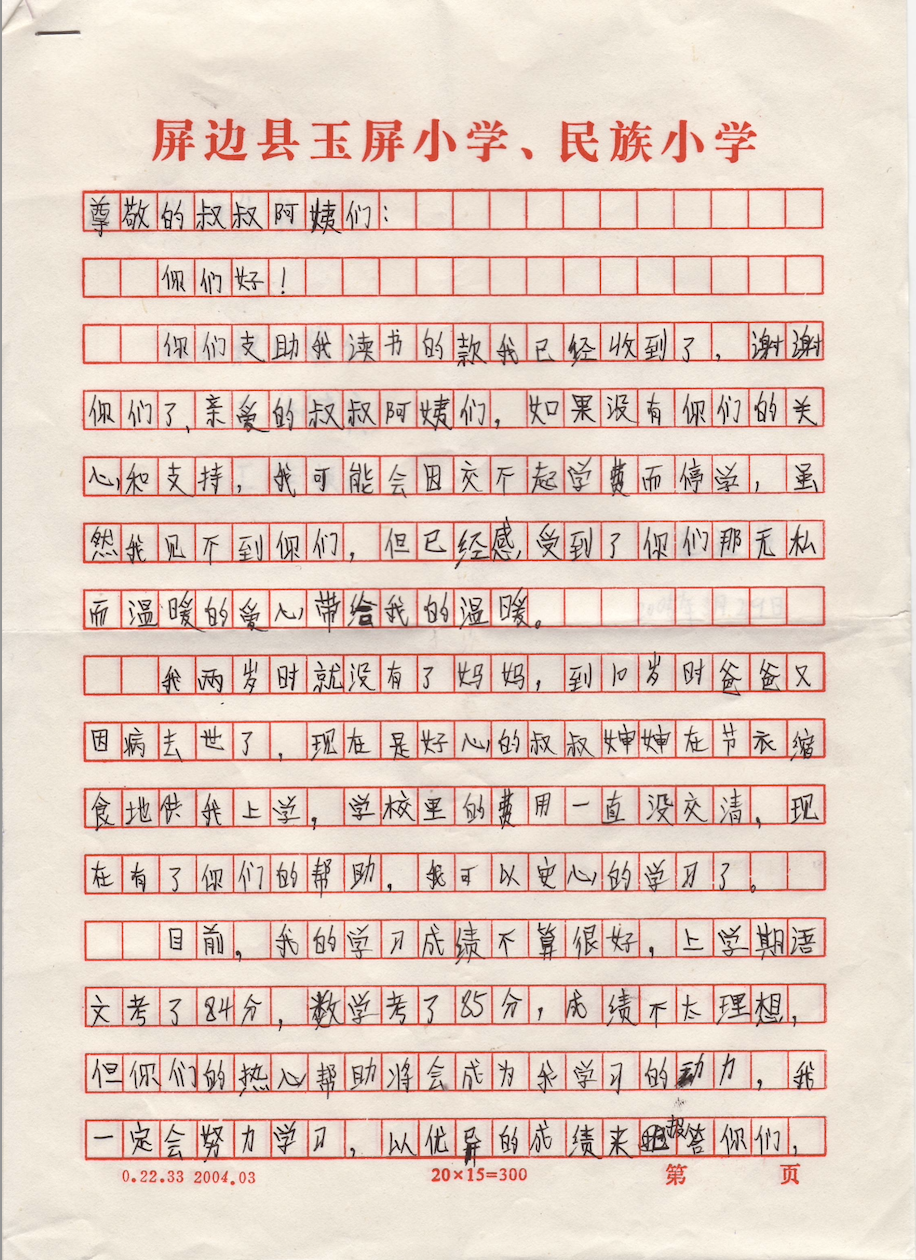 屏边县玉屏小学、民族小学
尊敬的叔叔阿姨们:
你们好!
你们支助我读书的款我已经收到了,谢谢
你们了、亲爱的叔叔阿姨们,如果没有你们的关
心和支持,我可能会因交不起学费而停学,虽
然我见不到你们,但已经感受到了你们那无私
而温暖的爱心带给我的温暖。
我两岁时就没有了妈妈,到10岁时爸爸又
因病去世了,现在是好心的叔叔婶婶在节衣缩
食地供我上学,学校里的费用一直没交清,现
在有了你们的帮助,我可以安心的学习了。
目前,我的学习成绩不算很好,上学期语
文考了84分,数学考了85分,成绩不太理想,
但你们的热心帮助将会成为我学习的动力,我
一定会努力学习,以优异的成绩来报答你们,
0.22.33 2004.03 20×15=300 第 页